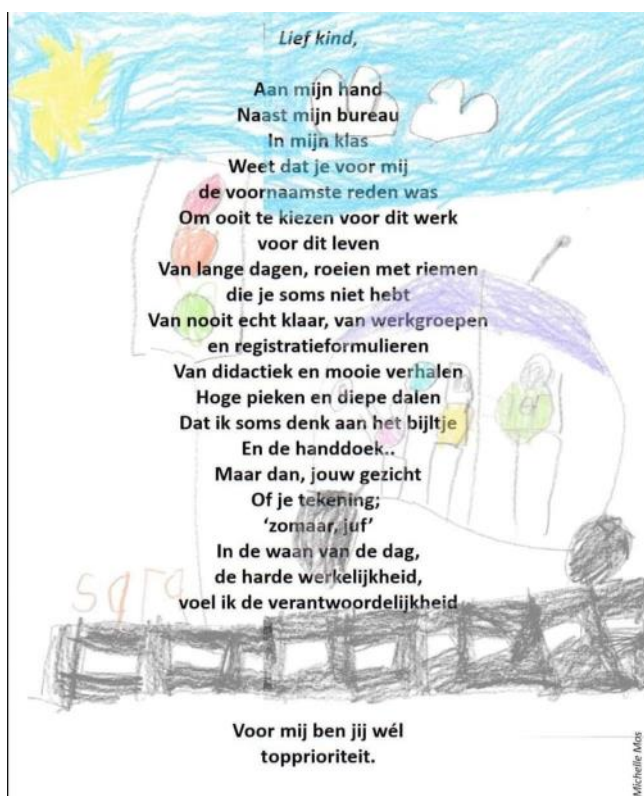 Lief kind,
Aan mijn hand
Naast mijn bureau
In mijn klas
Weet dat je voor mij
de voornaamste reden was
Om ooit te kiezen voor dit werk
voor dit leven
Van lange dagen, roeien met riemen
die je soms niet hebt
Van nooit echt klaar, van werkgroepen
en registratieformulieren
Van didactiek en mooie verhalen
Hoge pieken en diepe dalen
Dat ik soms denk aan het bijltje
En de handdoek..
Maar dan, jouw gezicht
Of je tekening;
‘zomaar, juf’
In de waan van de dag,
de harde werkelijkheid,
voel ik de verantwoordelijkheid
Voor mij ben jij wél
topprioriteit.
Michelle Mos